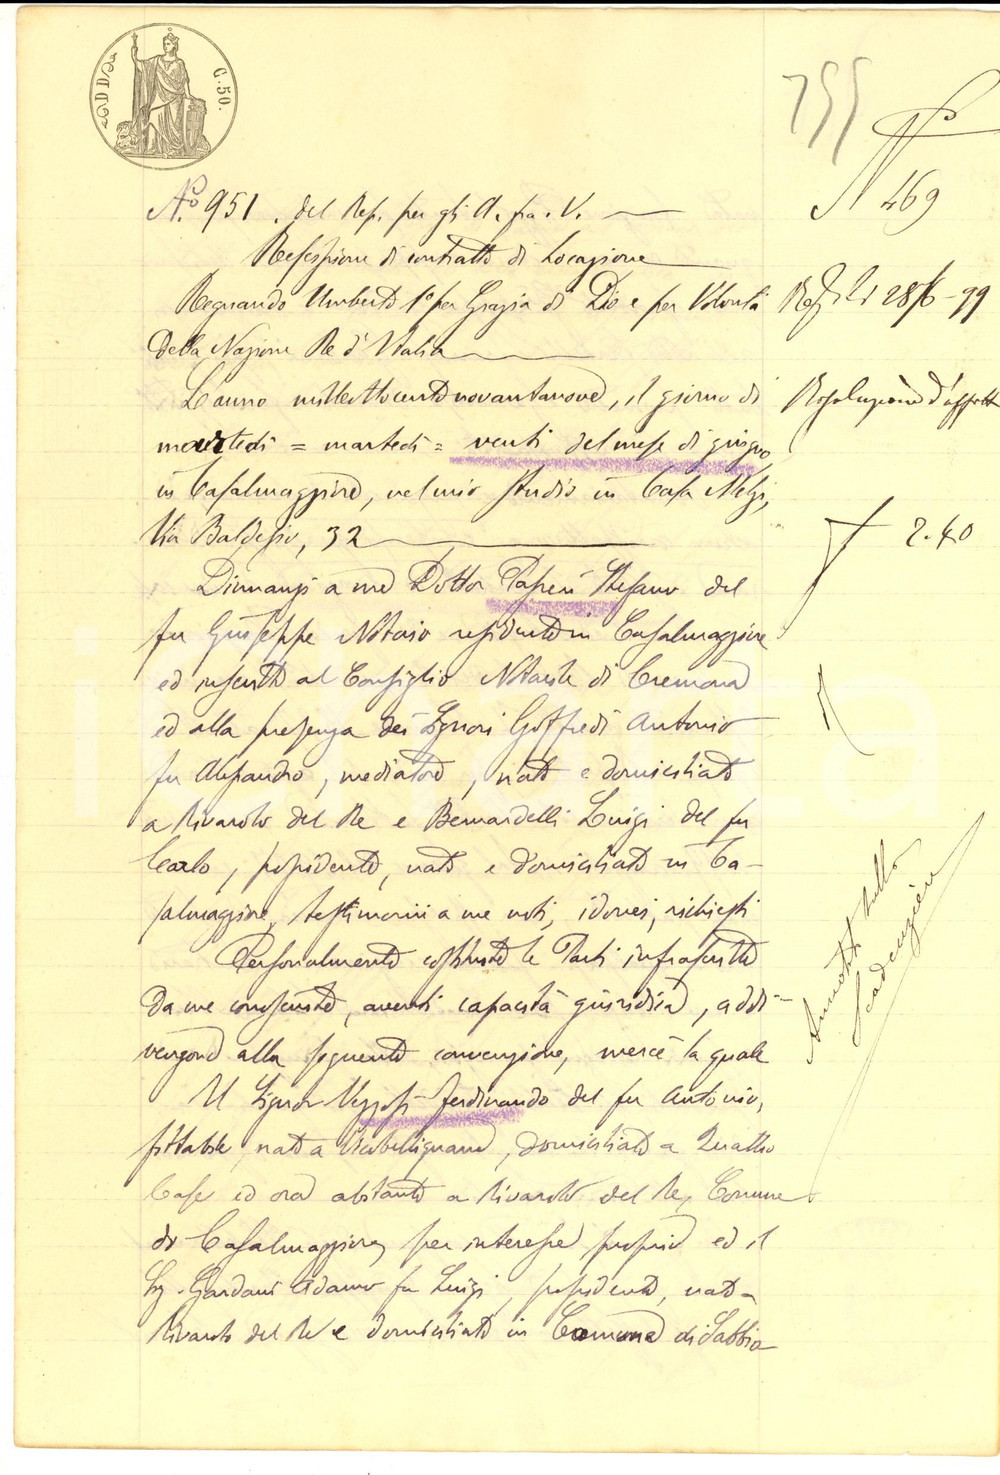 C. 50.
N.° 951. del Rep. per gli A. fra. V.
Rescissione di contratto di Locazione
Regnando Umberto 1° per Grazia di Dio e per Volontà
della Nazione Re d'Italia
L'anno milleottocentonovantanove, il giorno di
martedì = martedì = venti del mese di giugno,
in Casalmaggiore, nel mio studio in Casa Melzi,
Via Baldesio, 32
Dinnanzi a me Dottor Stefano del
fu Giuseppe Notaio residente in Casalmaggiore
ed inscritto al Consiglio Notarile di Cremona
ed alla presenza dei Signori Goffredi Antonio
fu Alessandro, mediatore, nato e domiciliato
a Rivarolo del Re e Bernardelli Luigi del fu
Carlo, possidente, nato e domiciliato in Ca-
salmaggiore, testimonii a me noti, idonei, richiesti
Personalmente costituite le Parti infrascritte
da me conosciute, aventi capacità giuridica, addi-
vengono alla seguente convenzione, mercè la quale
Il Signor Vezzosi Ferdinando del fu Antonio,
fittabile, nato a Vicobellignano, domiciliato a Quattro
Case ed ora abitante a Rivarolo del Re, Comune
di Casalmaggiore, per interesse proprio ed il
Sig. Gardani Adamo fu Luigi, possidente, nato a
Rivarolo del Re e domiciliato in Comune di Sabbio
755
N° 469
28/6-99
Risoluzione d'affitto
2.40
Annotata sullo
scadenziere